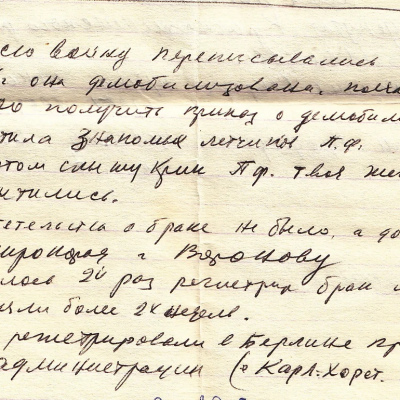 сю войну переписывались
она демобилизована. 
го получить приказ о демобил
тила знакомых летчиков П.Ф.
этом слышу крик П.Ф. твоя же
тились.
тетельства о браке не было, а до
г. Воронову
лось 2й раз регистрир брак
яли более 2х недель.
регистрировали в Берлине пр
администрации (в Карл-Хорст.